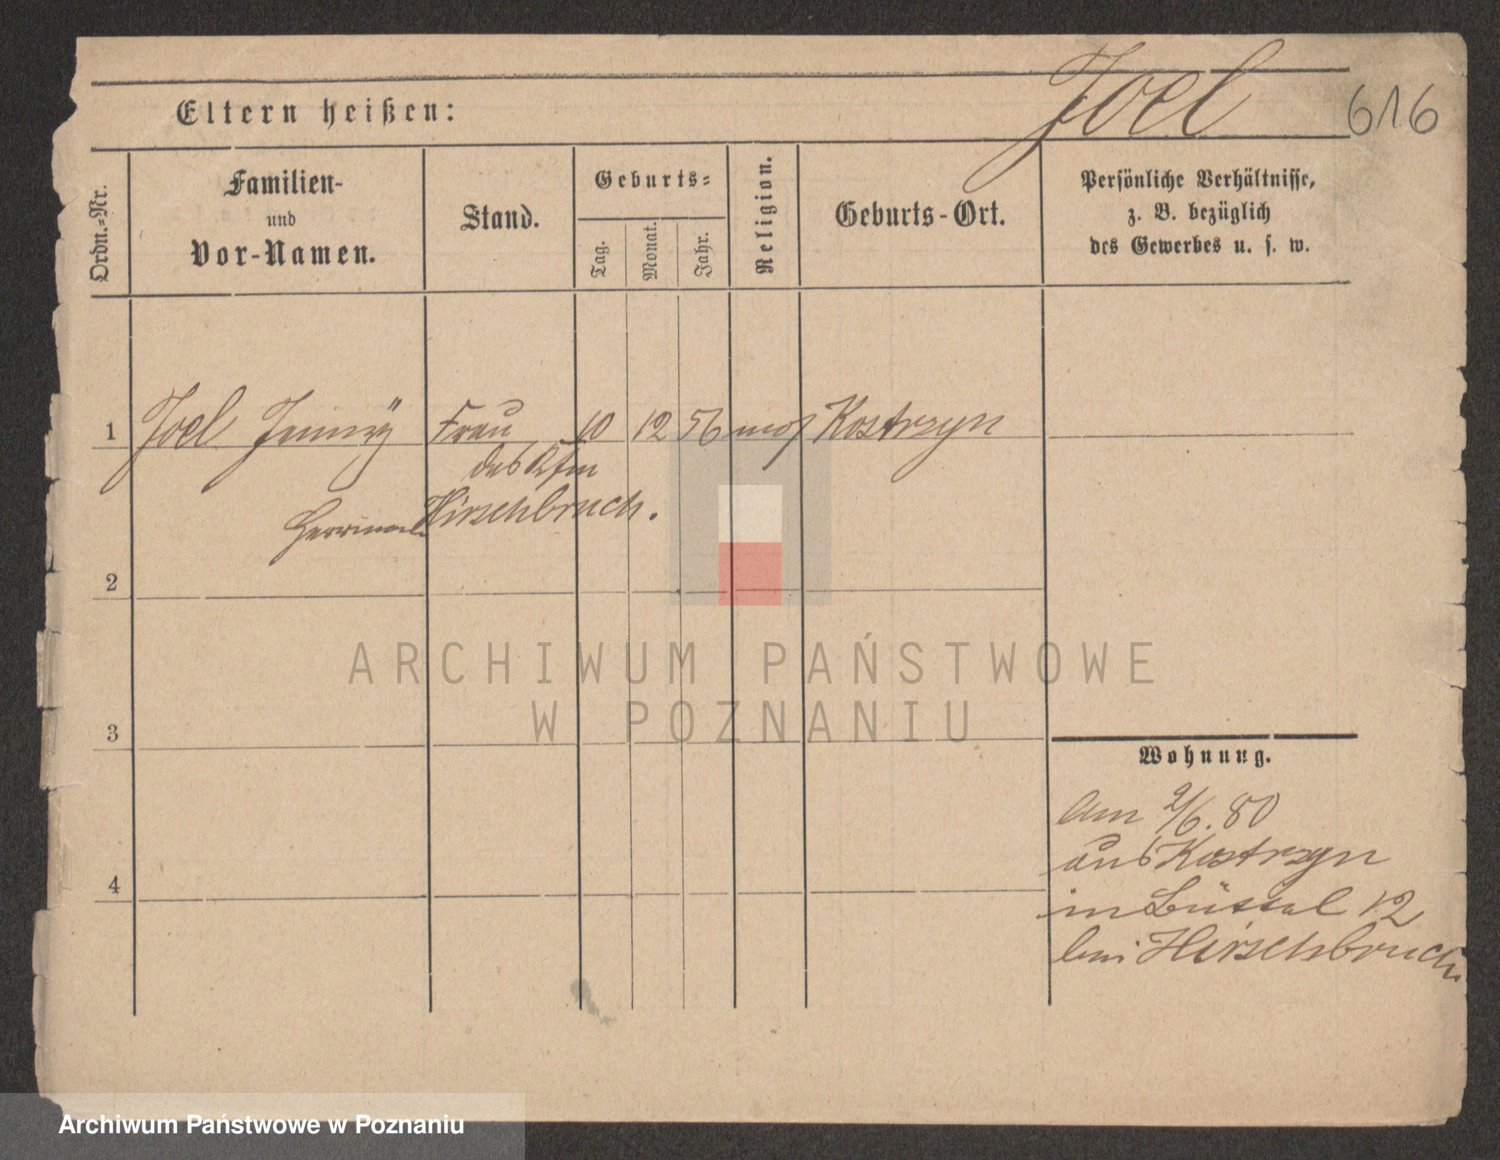 Joel
616
Eltern heißen:
Ordn.-Nr.
Familien-
und
Vor-Namen.
Stand.
Geburts-
Tag.
Monat.
Jahr.
Religion.
Geburts-Ort.
Persönliche Verhältnisse,
z. B. bezüglich
des Gewerbes u. s. w.
1 Joel Jenny Frau 10 12 56 mos Kostrzyn
des Kfm
Hirschbruch.
2
3
4
Wohnung.
Am 2/6. 80
aus Kostrzyn
in 12
bei Hirschbruch
ARCHIWUM PAŃSTWOWE
W POZNANIU
Archiwum Państwowe w Poznaniu